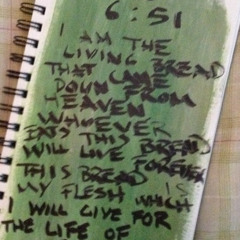 6:51
I AM THE
LIVING BREAD
THAT CAME
DOWN FROM
HEAVEN
WHOEVER
EATS THIS BREAD
WILL LIVE FOREVER
THIS BREAD IS
MY FLESH WHICH
I WILL GIVE FOR
THE LIFE OF